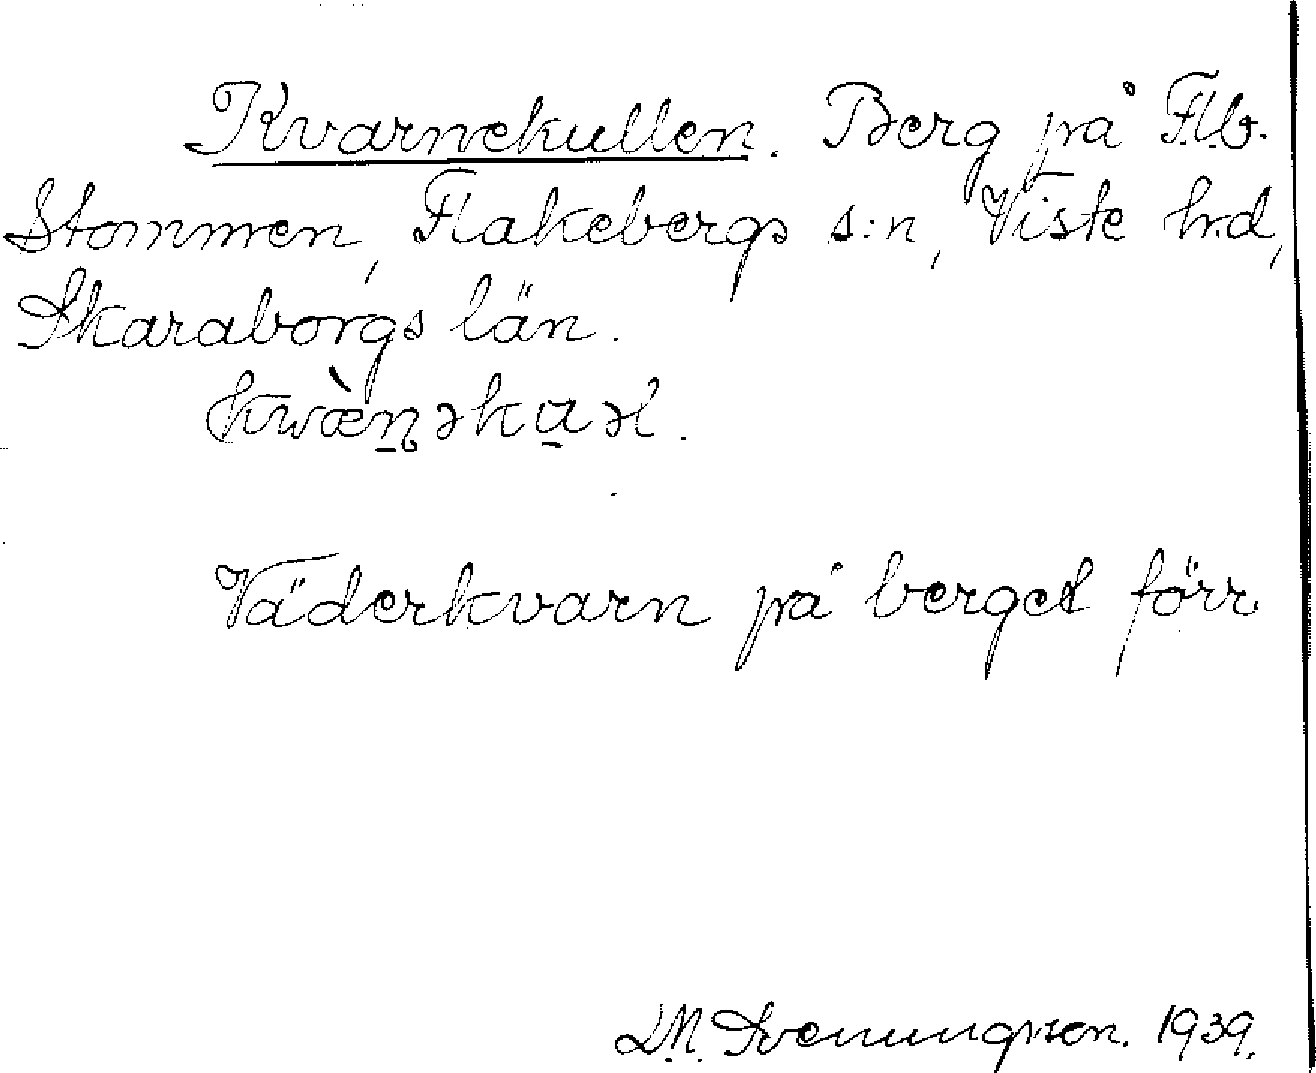 Kvarnekullen. Berg på Flb.
Stommen, Flakebergs s:n, Viste hrd,
Skaraborgs län.
Väderkvarn på berget förr
L.M. Svenungsson. 1939.